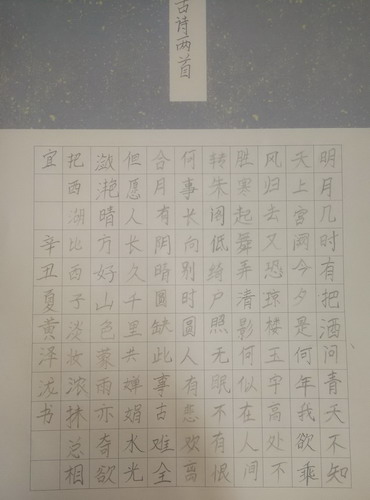 古诗两首
明月几时有把酒问青天不知
天上宫阙今夕是何年我欲乘
风归去又恐琼楼玉宇高处不
胜寒起舞弄清影何似在人间
转朱阁低绮户照无眠不有恨
何事长向别时圆人有悲欢离
合月有阴晴圆缺此事古难全
但愿人长久千里共婵娟水光
潋滟晴方好山色蒙雨亦奇欲
把西湖比西子淡妆浓抹总相
宜 辛丑夏黄泽龙书